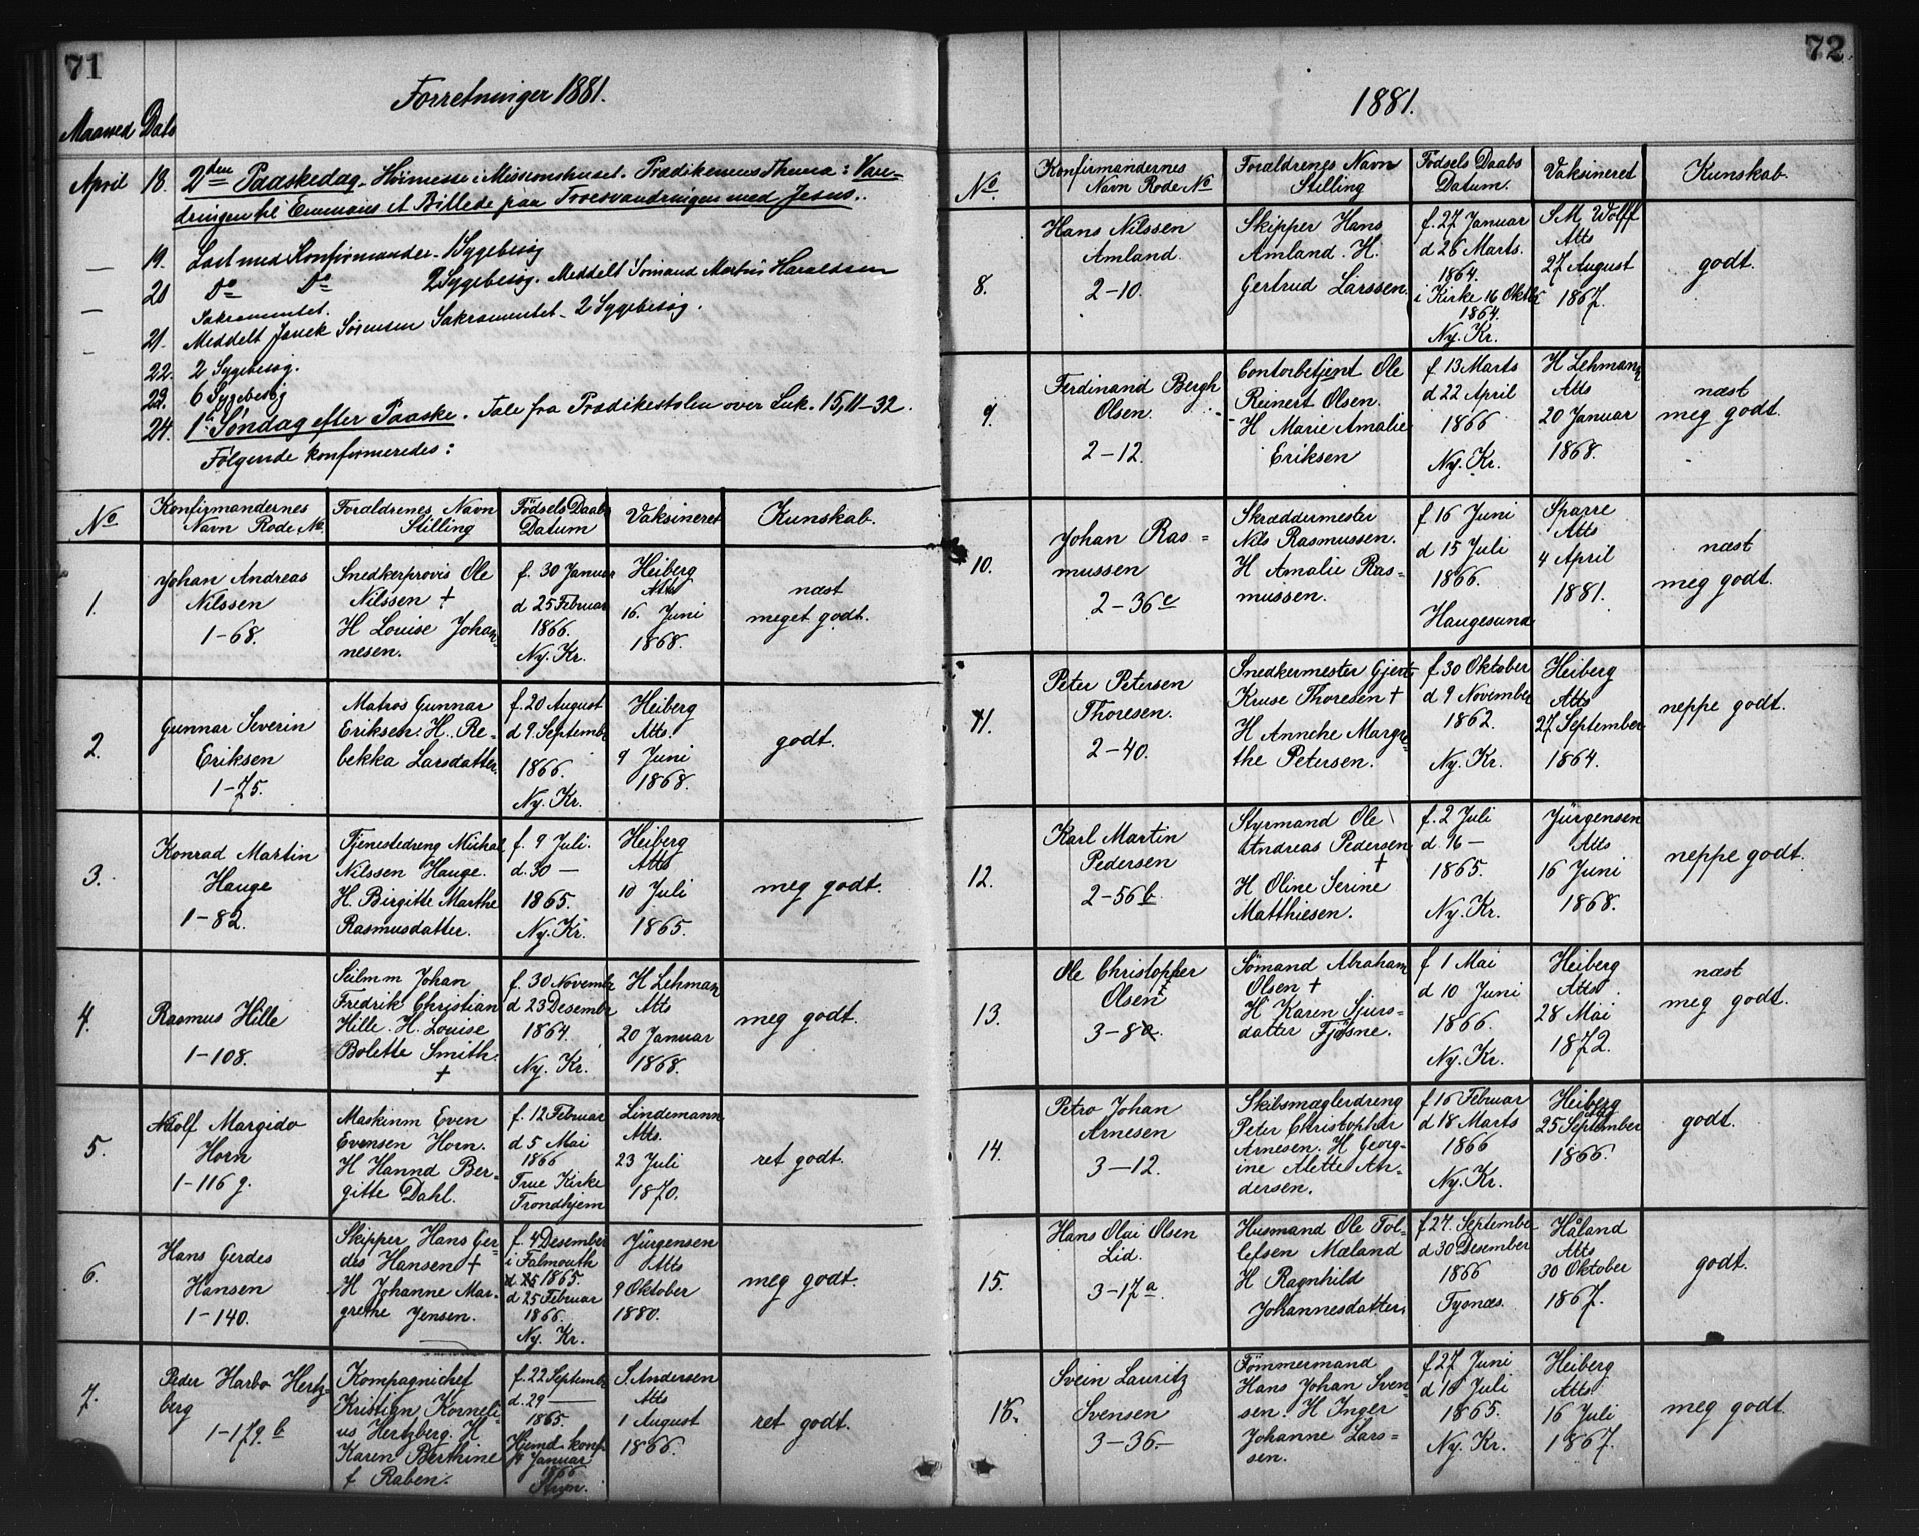 71
Forretninger 1881.
Maaned Dato
April 18. 2den Paaskedag. Høimesse i Missionshuset. Prædikenens Thema: Van-
dringen til Emmaus et Billede paa Troesvandringen med Jesus.
— 19. Læst med Konfirmander. 1 Sygebesøg
— 20 Do Do 2 Sygebesøg. Meddelt Sømand Martin Haraldsen
Sakramentet.
- 21. Meddelt Sørensen Sakramentet - 2 Sygebesøg.
22. 2 Sygebesøg.
23. 6 Sygebesøg
24. 1. Søndag efter Paaske. Tale fra Prædikestolen over Luk. 15,11-32.
Følgende konfirmeredes:
No Konfirmandernes Navn Rode No. Forældrenes Navn Stilling Födsels Daabs Datum Vaksineret Kunskab.
1. Johan Andreas
Nilssen
1-68.
Snedkerprovis Ole
Nilssen +
H Louise Johan-
nesen.
f. 30 Januar
d 25 Februar
1866.
Ny. Kr.
Heiberg
Atts
16. Juni
1868.
næst
meget godt.
2. Gunnar Severin
Eriksen
1-75.
Matros Gunnar
Eriksen. H. Re-
bekka Larsdatter.
f. 20 August
d 9. Septembr
1866.
Ny. Kr.
Heiberg
Atts.
9 Juni
1868.
godt.
3. Konrad Martin
Hauge
1-82.
Tjenestedreng Michal
Nilssen Hauge.
H. Birgitte Marthe
Rasmusdatter.
f. 9 Juli.
d. 30 —
1865.
Ny. Kr.
Heiberg
Atts
10 Juli
1865.
meg godt.
4. Rasmus Hille
1-108.
Seilmm Johan
Fredrik Christian
Hille. H. Louise
Bolette Smith.
+
f. 30 Novembr
d 23 Desembr
1864.
Ny. Kr.
H Lehman
Atts
20 Januar
1868.
meg godt.
5. Adolf Margido
Horn
1-116 g.
Maskinm Even
Evensen Horn.
H Hannd Ber-
gitte Dahl.
f. 12 Februar
d 5 Mai
1866
Frue Kirke
Trondhjem
Lindemann
Atts.
23 Juli
1870.
ret godt.
6. Hans Gerdes
Hansen
1-140.
Skipper Hans Ger-
des Hansen +
H Johanne Mar-
grethe Jensen.
f. 4 Desember
i Falmouth
1865.
d 25 Februar
1866.
Ny. Kr.
Jürgensen
Atts
9 Oktober
1880.
meg godt.
7. Peder Harbo Hertz-
berg
1-179 b
Kompagnichef
Kristian Korneli-
us Hertzberg. H
Karen Berthine
f Raben.
f. 22 Septembr
d. 29 —
1865.
Hjemd. konf.
Januar
1866
S Andersen
Atts
1 August
1866.
ret godt.
72.
1881.
No Konfirmandernes Navn Rode No Forældrenes Navn Stilling Födsels Daabs Datum. Vaksineret Kunskab.
8. Hans Nilssen
Amland.
2-10.
Skipper Hans
Amland. H.
Gertrud Larssen.
f. 27 Januar
d 26 Marts.
1864.
i Kirke 16 Oktbr
1864.
Ny. Kr.
S.M. Wolff
Atts
27 August
1867.
godt.
9. Ferdinand Bergh
Olsen.
2-12.
Contorbetjent Ole
Reinert Olsen.
H Marie Amalie
Eriksen
f 13 Marts
d 22 April
1866
Ny. Kr.
H Lehmann
Atts
20 Januar
1868.
næst
meg godt.
10. Johan Ras=
mussen
2-36c
Skræddermester
Nils Rasmussen.
H Amalie Ras=
mussen.
f 16 Juni
d 15 Juli
1866.
Haugesund
Sparre
Atts
4 April
1881.
næst
meg godt.
11. Peter Petersen
Thoresen.
2-40.
Snedkermester Gjert
Kruse Thoresen +
H Anneke Margre-
the Petersen.
f. 30 Oktober
d 9 November
1862.
Ny. Kr.
Heiberg
Atts
27 September
1864.
neppe godt.
12. Karl Martin
Pedersen
2-56b.
Styrmand Ole
Andreas Pedersen
+
H Oline Serine
Matthiesen.
f. 2 Juli
d. 16 —
1865.
Ny. Kr.
Jürgensen
Atts
16 Juni
1868.
neppe godt.
13. Ole Christopher
Olsen
3-8a
Sömand Abraham
Olsen +
H Karen Sjurs-
datter Fjösne.
f 1 Mai
d 10 Juni
1866.
Ny. Kr.
Heiberg
Atts
28 Mai
1872.
næst
meg godt.
14. Petro Johan
Arnesen
3-12.
Skibsmæglerdreng
Peter Christopher
Arnesen. H Georg-
ine Alette An-
dersen.
f 16 Februar
d 18 Marts
1866
Ny. Kr.
Heiberg
Atts
25 September
1866.
godt.
15. Hans Olai Olsen
Lid.
3-17a.
Husmand Ole Tol-
lefsen Mæland
H Ragnhild
Johannesdatter.
f 27. September
d 30 Desember
1866
Tysnæs.
Håland
Atts
30 Oktober
1867.
godt.
16. Svein Lauritz
Svensen
3-36.-
Tömmermand
Hans Johan Sven-
sen. H Inger
Johanne Lars=
sen.
f 27 Juni
d 16 Juli
1865.
Ny. Kr.
Heiberg
Atts.
16 Juli
1867.
meg godt.